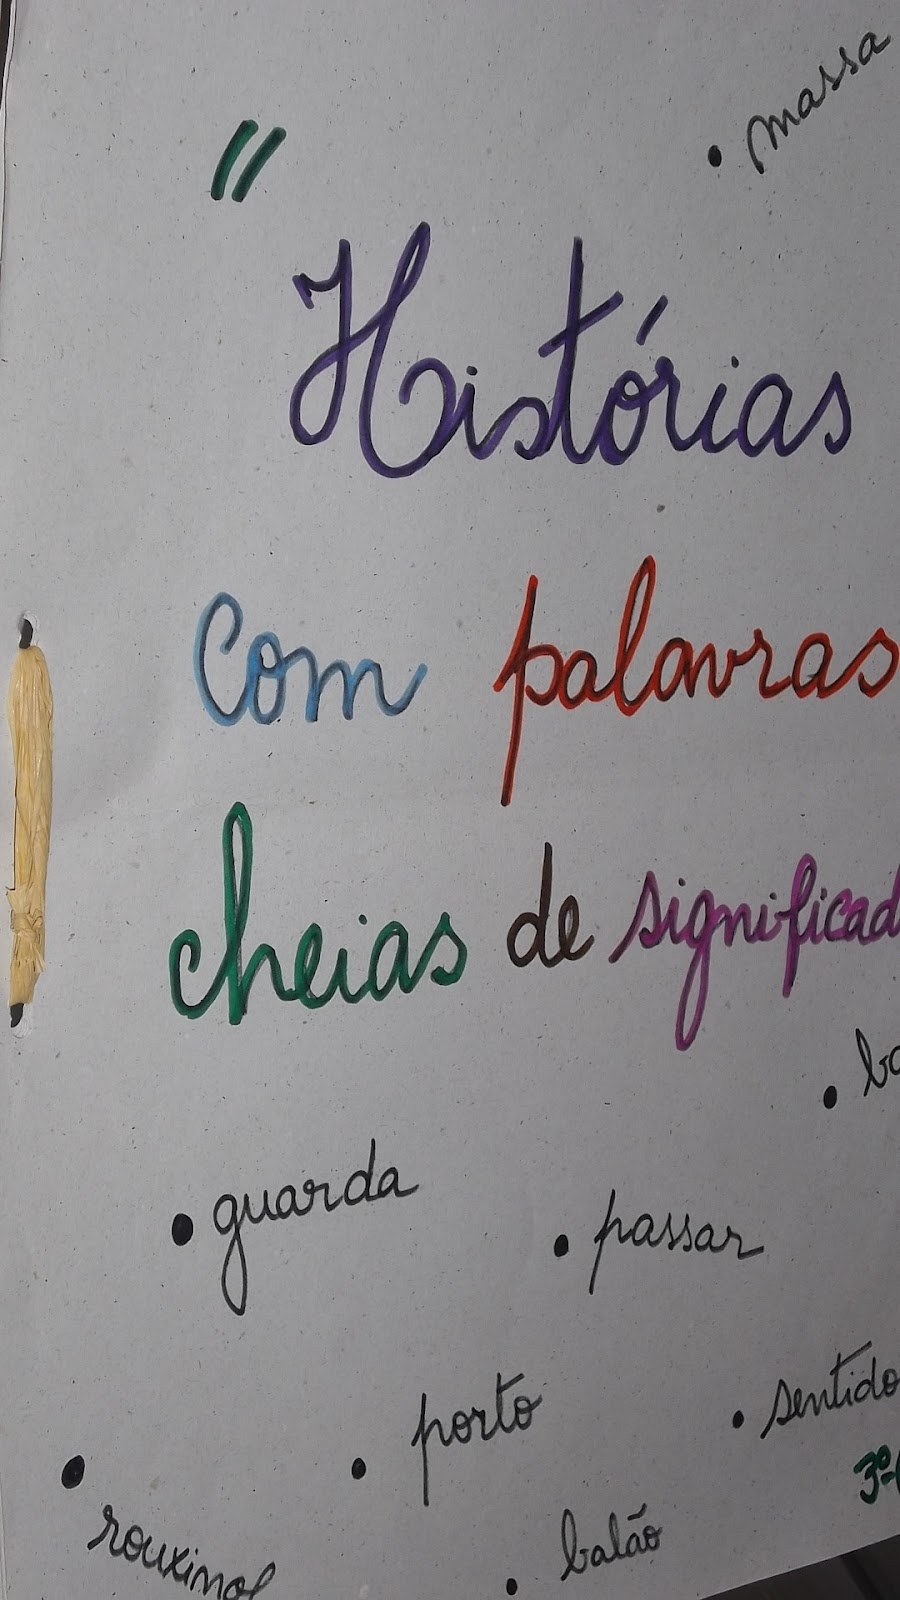 • massa
"
Histórias
com palavras
cheias de significad
• ba
• guarda
• passar
• porto
• sentido
3º-
• rouxinol
• balão